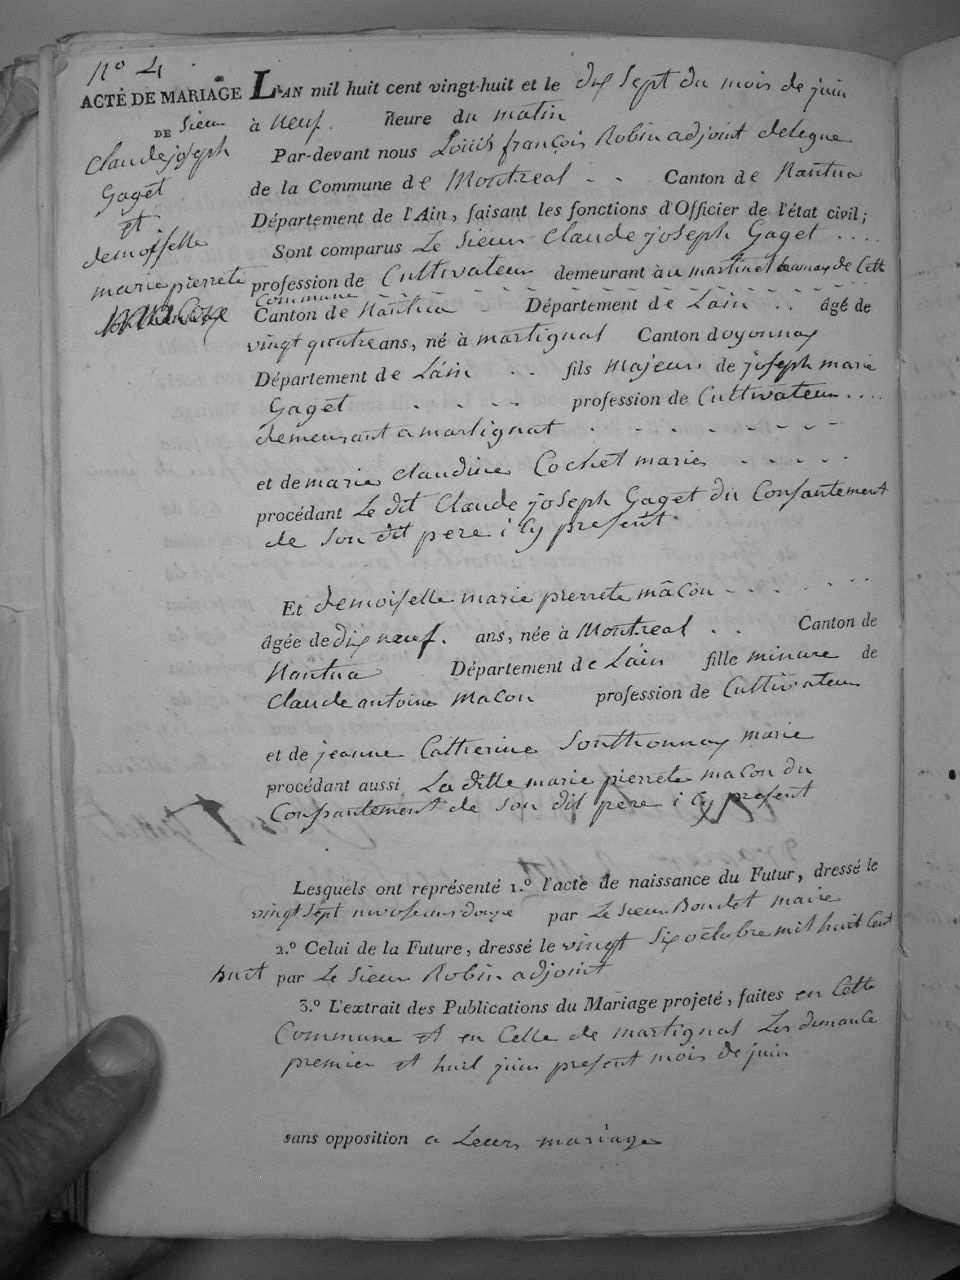 N° 4
ACTE DE MARIAGE
DE Sieur
Claude joseph
Gaget
Et
demoiselle
marie pierrete
L'AN mil huit cent vingt-huit et le dix Sept du mois de juin
à neuf. Heure du matin
Par-devant nous Louis françois Robin adjoint delegue
de la Commune de Montreal - - Canton de Nantua
Département de l'Ain, faisant les fonctions d'Officier de l'état civil;
Sont comparus Le Sieur Claude joseph Gaget ....
profession de Cultivateur demeurant à au martinet de Cette
Commune
Canton de Nantua - Département de Lain .. âgé de
vingt quatre ans, né à martignat Canton doyonnax
Département de Lain .. fils Majeur de joseph marie
Gaget . . . . profession de Cultivateur ....
demeurant a martignat - - - - - - - -
et de marie Claudine Cochet marie - - - - -
procédant Le dit Claude joseph Gaget du Consantement
de Son dit pere i Cy present.
Et demoiselle marie pierrete mâcon - - - . . . .
âgée de dix neuf. ans, née à Montreal . . Canton de
Nantua Département de Lain fille minure de
Claude antoine Macon profession de Cultivateur
et de jeanne Catherine Sonthonnax marie
procédant aussi La ditte marie pierrete macon du
Consantement de Son dit pere i Cy present
Lesquels ont représenté 1.° l'acte de naissance du Futur, dressé le
vingt Sept par Le Sieur Boudet maire
2.° Celui de la Future, dressé le vingt Six octobre mil huit Cent
huit par Le Sieur Robin adjoint
3.° L'extrait des Publications du Mariage projeté, faites en Cette
Commune et en Celle de martignat Les dimanle
premier et huit juin present mois de juin
sans opposition a Leur mariage